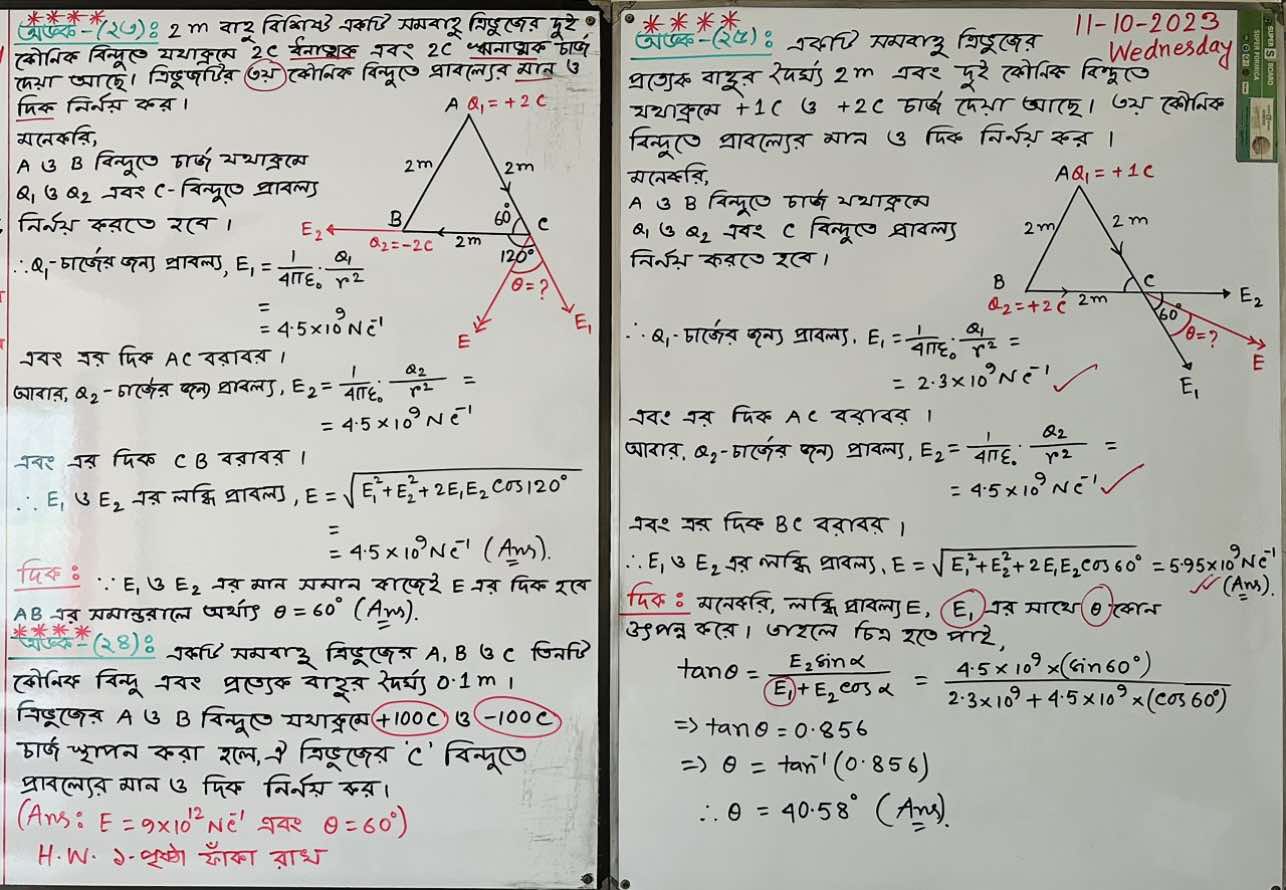 অংক-(২৩): 2 m বাহু বিশিষ্ট একটি সমবাহু ত্রিভুজের দুই
কৌনিক বিন্দুতে যথাক্রমে 2C ধনাত্মক এবং 2C ঋনাত্মক চার্জ
দেয়া আছে। ত্রিভুজটির ৩য় কৌনিক বিন্দুতে প্রাবল্যের মান ও
দিক নির্নয় কর।
মনেকরি,
A ও B বিন্দুতে চার্জ যথাক্রমে
Q₁ ও Q₂ এবং C-বিন্দুতে প্রাবল্য
নির্নয় করতে হবে।
A Q₁ = +2C
2m
2m
B
60°
C
E₂
Q₂=-2C
2m
120°
θ=?
E
E₁
∴ Q₁-চার্জের জন্য প্রাবল্য, E₁ = 1/4πε₀ · Q₁/r²
=
= 4.5×10⁹ NC⁻¹
এবং এর দিক AC বরাবর।
আবার, Q₂-চার্জের জন্য প্রাবল্য, E₂ = 1/4πε₀ · Q₂/r² =
= 4.5×10⁹ NC⁻¹
এবং এর দিক CB বরাবর।
∴ E₁ ও E₂ এর লব্ধি প্রাবল্য, E = √(E₁²+E₂²+2E₁E₂ cos120°)
=
= 4.5×10⁹ NC⁻¹ (Ans).
দিক: ∵ E₁ ও E₂ এর মান সমান কাজেই E এর দিক হবে
AB এর সমান্তরালে অর্থাৎ θ = 60° (Ans).
অংক-(২৪): একটি সমবাহু ত্রিভুজের A, B ও C তিনটি
কৌনিক বিন্দু এবং প্রত্যেক বাহুর দৈর্ঘ্য 0.1 m।
ত্রিভুজের A ও B বিন্দুতে যথাক্রমে +100C ও -100C
চার্জ স্থাপন করা হলে, ঐ ত্রিভুজের 'C' বিন্দুতে
প্রাবল্যের মান ও দিক নির্নয় কর।
(Ans: E = 9×10¹² NC⁻¹ এবং θ=60°)
H.W. ১-পৃষ্ঠা ফাঁকা রাখ
11-10-2023
Wednesday
অংক-(২৫): একটি সমবাহু ত্রিভুজের
প্রত্যেক বাহুর দৈর্ঘ্য 2m এবং দুই কৌনিক বিন্দুতে
যথাক্রমে +1C ও +2C চার্জ দেয়া আছে। ৩য় কৌনিক
বিন্দুতে প্রাবল্যের মান ও দিক নির্নয় কর।
মনেকরি,
A ও B বিন্দুতে চার্জ যথাক্রমে
Q₁ ও Q₂ এবং C বিন্দুতে প্রাবল্য
নির্নয় করতে হবে।
A Q₁ = +1C
2m
2m
B
C
E₂
Q₂=+2C
2m
60°
θ=?
E
E₁
∴ Q₁-চার্জের জন্য প্রাবল্য, E₁ = 1/4πε₀ · Q₁/r² =
= 2.3×10⁹ NC⁻¹
এবং এর দিক AC বরাবর।
আবার, Q₂-চার্জের জন্য প্রাবল্য, E₂ = 1/4πε₀ · Q₂/r² =
= 4.5×10⁹ NC⁻¹
এবং এর দিক BC বরাবর।
∴ E₁ ও E₂ এর লব্ধি প্রাবল্য, E = √(E₁²+E₂²+2E₁E₂cos60°) = 5.95×10⁹ NC⁻¹
(Ans).
দিক: মনেকরি, লব্ধি প্রাবল্য E, E₁ এর সাথে θ কোন
উৎপন্ন করে। তাহলে চিত্র হতে পাই,
tanθ = E₂sinα/(E₁+E₂cosα) = 4.5×10⁹×(sin60°)/(2.3×10⁹+4.5×10⁹×(cos60°))
⇒ tanθ = 0.856
⇒ θ = tan⁻¹(0.856)
∴ θ = 40.58° (Ans).